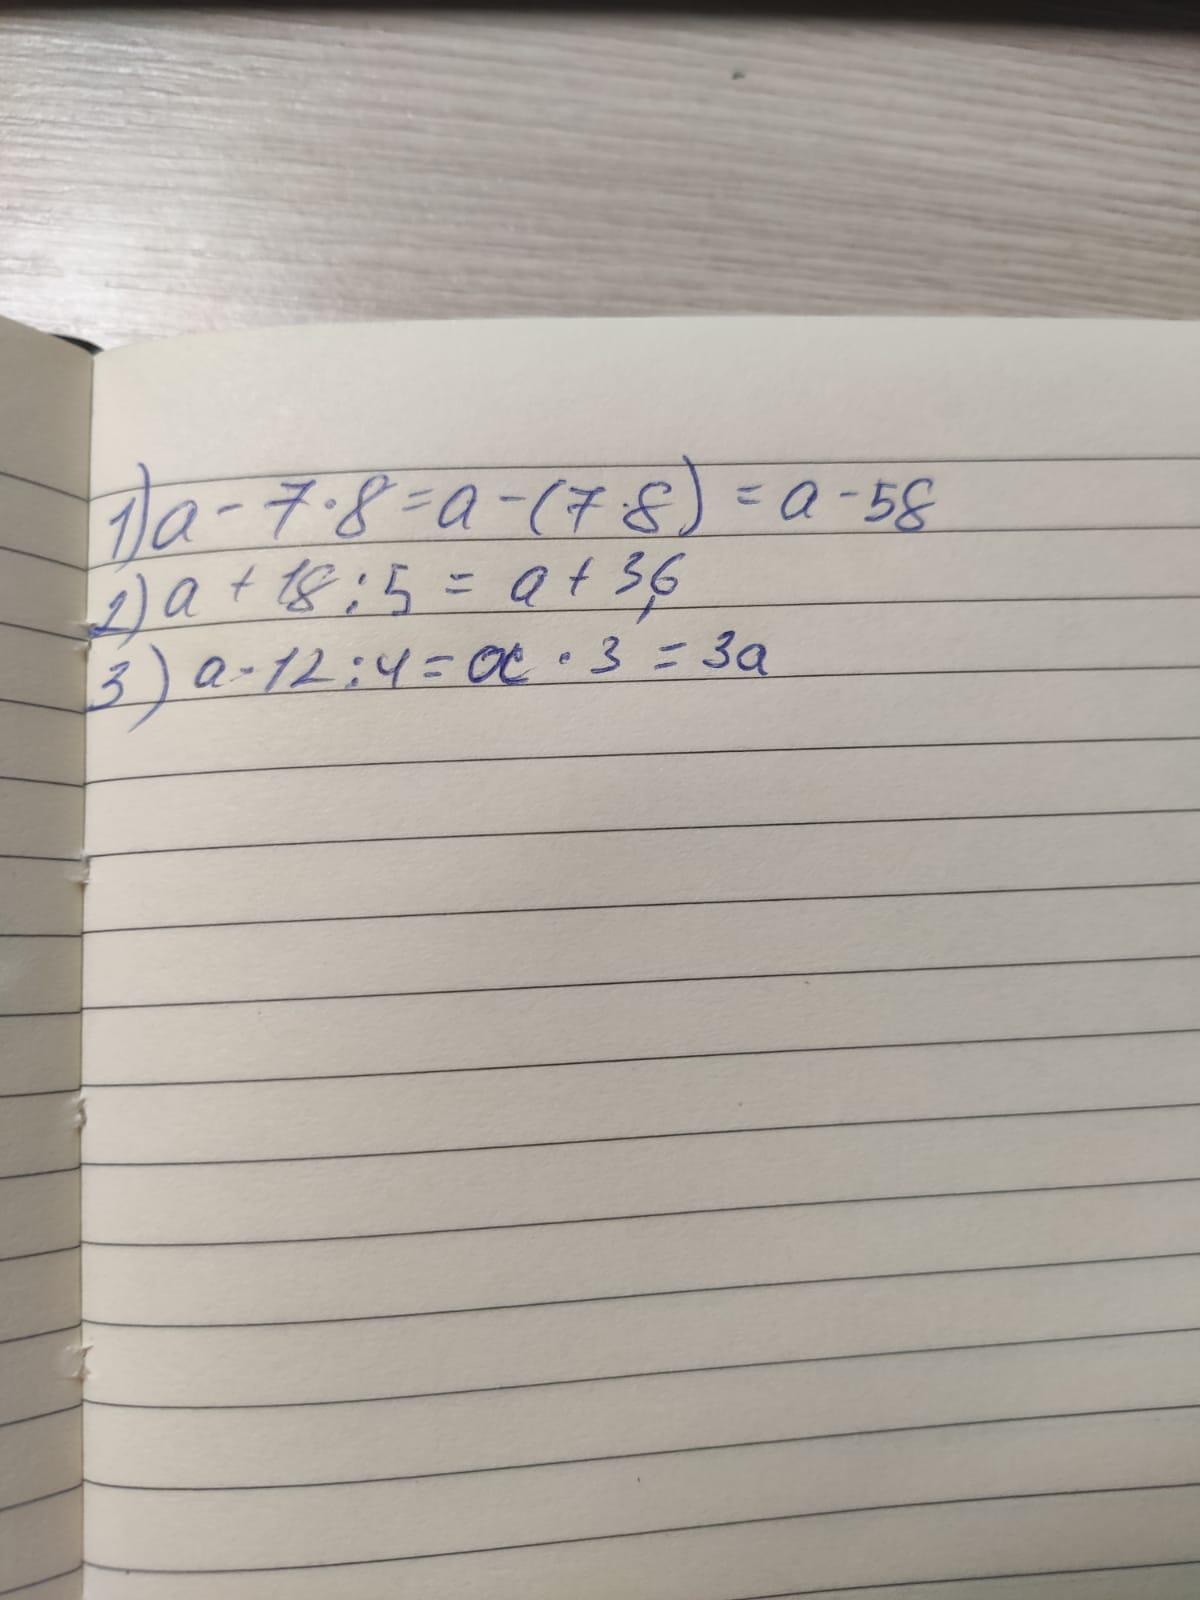 1) a - 7 · 8 = a - (7 · 8) = a - 58
2) a + 18 : 5 = a + 3,6
3) a · 12 : 4 = a · 3 = 3a